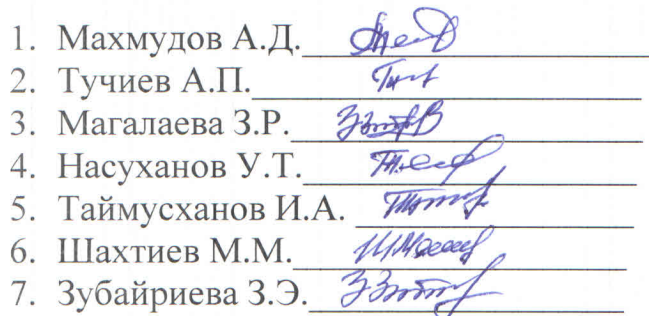 1. Махмудов А.Д.
2. Тучиев А.П.
3. Магалаева З.Р.
4. Насуханов У.Т.
5. Таймусханов И.А.
6. Шахтиев М.М.
7. Зубайриева З.Э.